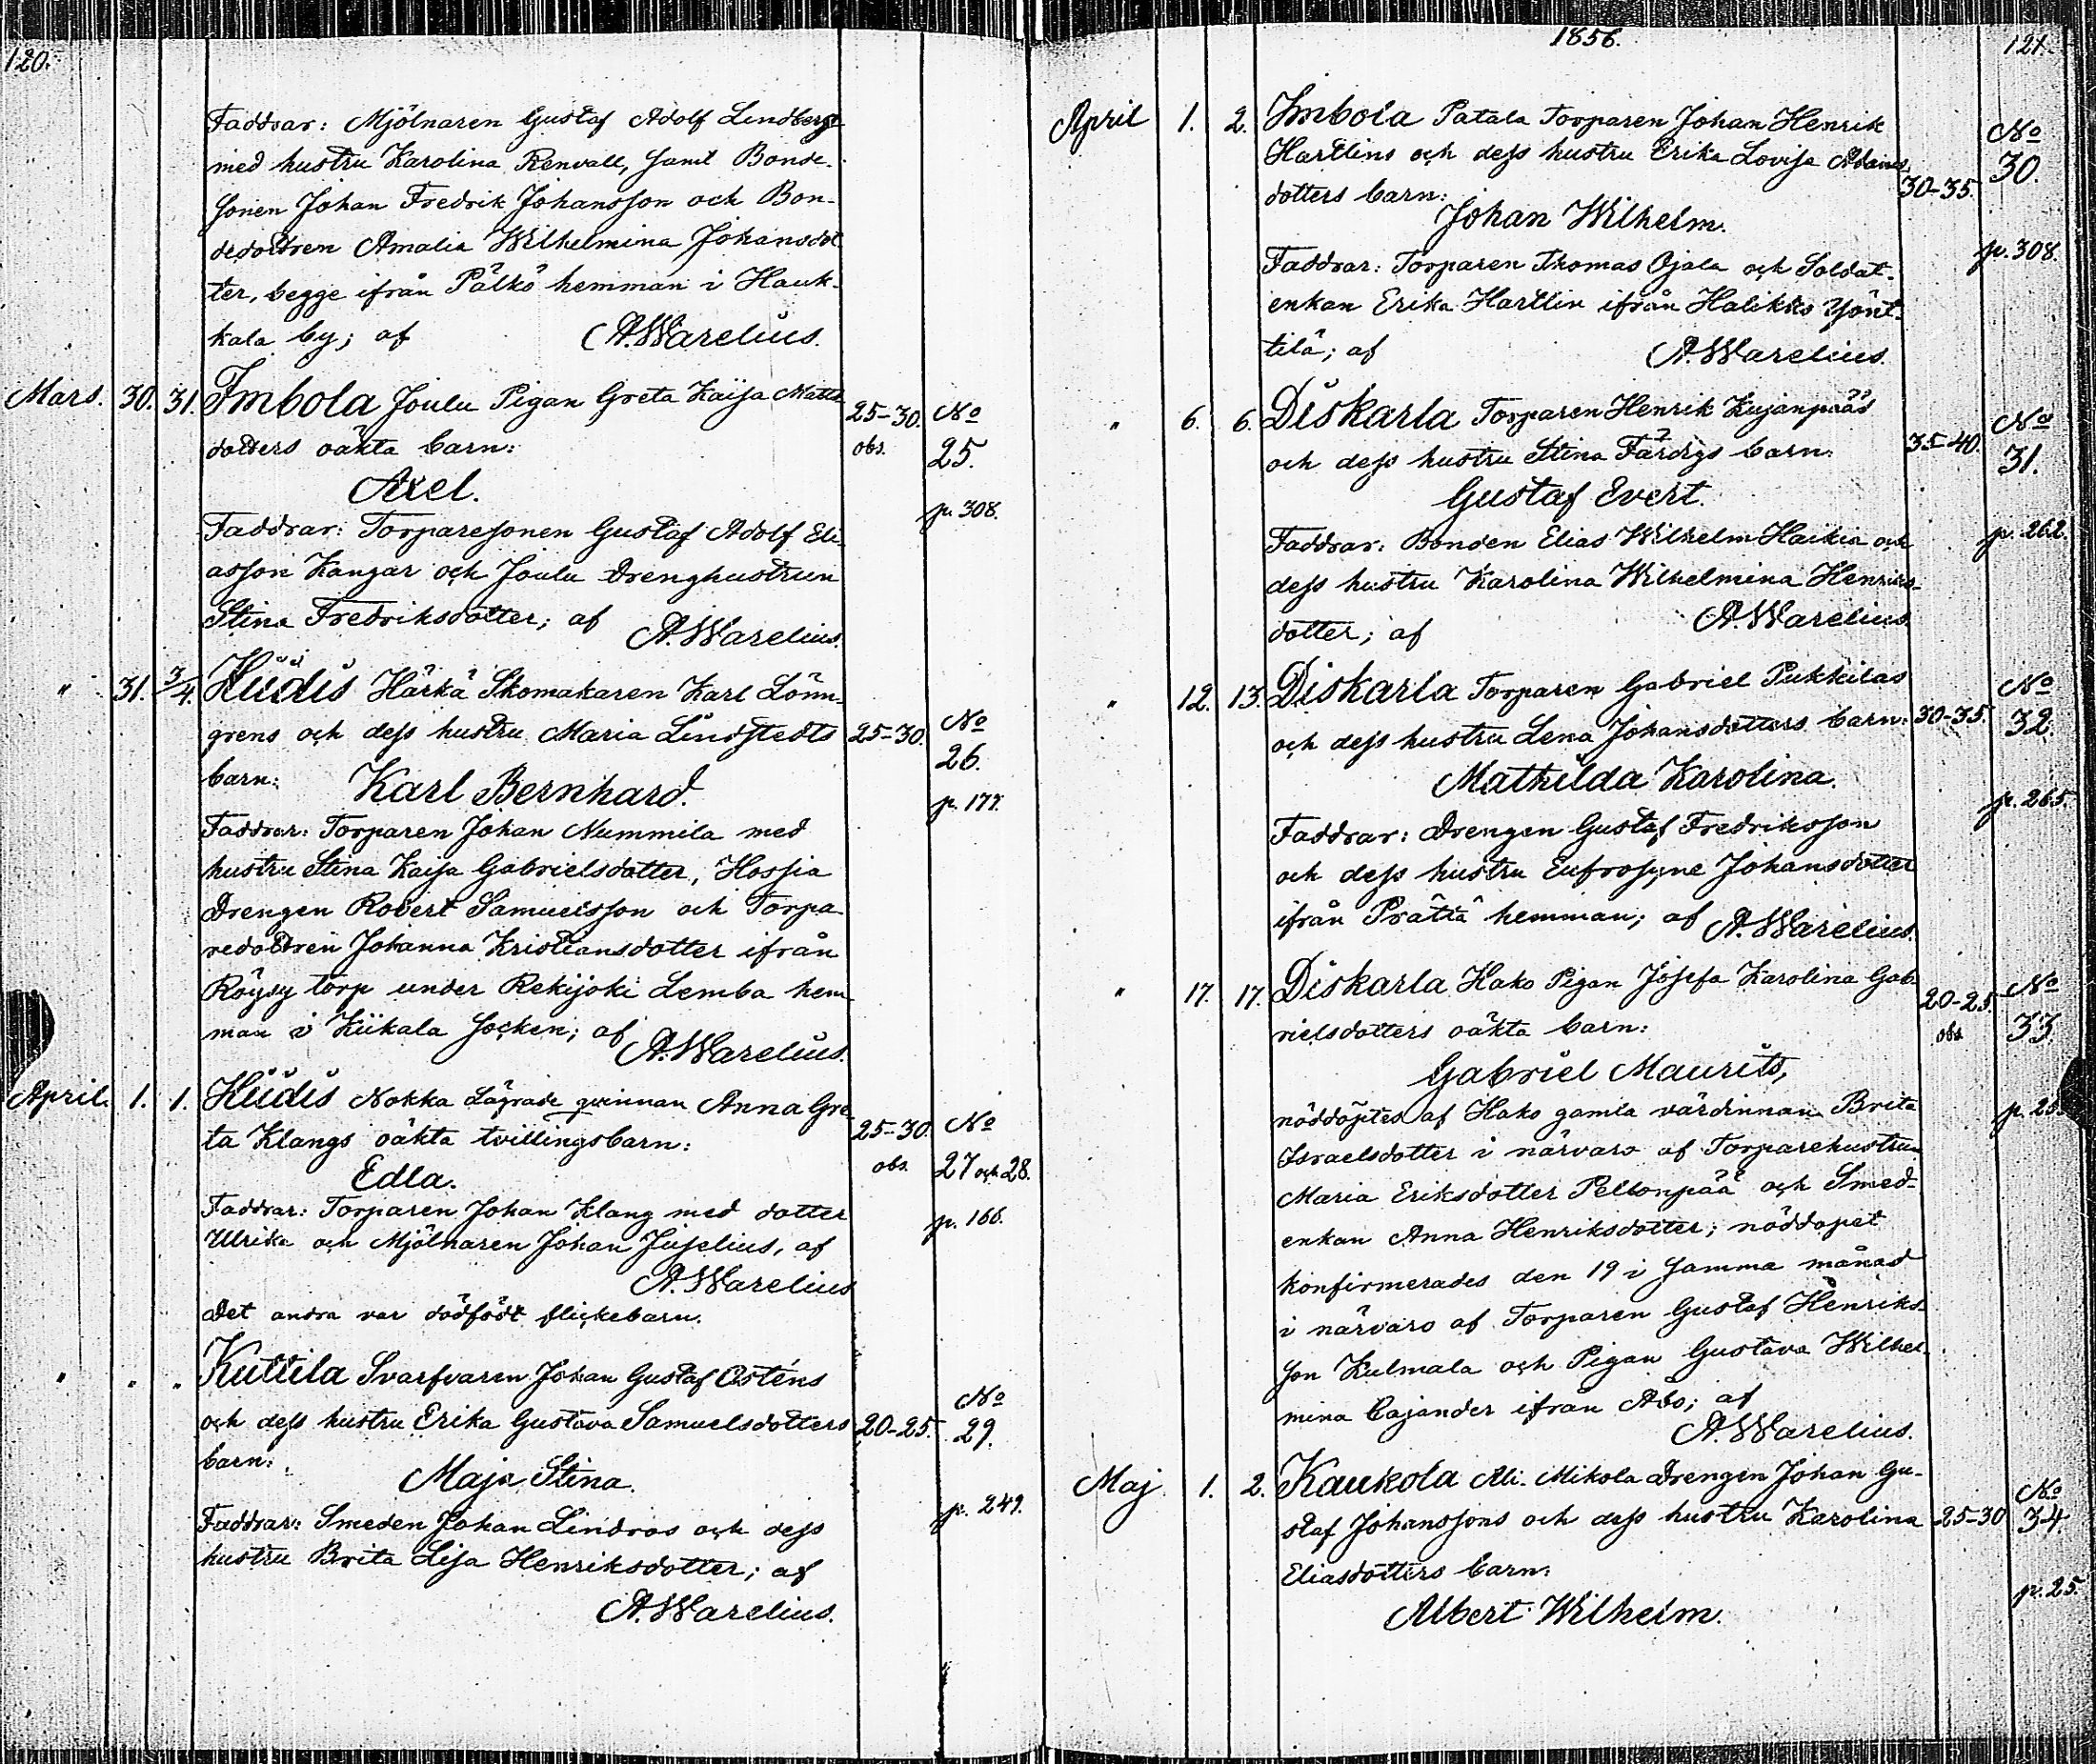 120.
Faddrar: Mjölnaren Gustaf Adolf Lindberg
med hustru Karolina Renvall, samt Bonde-
sonen Johan Fredrik Johansson och Bon-
dedottren Amalia Wilhelmina Johansdot
ter, begge ifrån Pälkö hemman i Hauk-
kala by; af A. Warelius.
Mars. 30. 31. Imbola Joulu Pigan Greta Kaisa Matts
dotters oäkta barn: 25-30. obs. No 25.
Axel.
p. 308.
Faddrar: Torparesonen Gustaf Adolf Eli-
asson Kangar och Joulu Drenghustrun
Stina Fredriksdotter; af A. Warelius.
" 31. 3/4. Hiidis Härkä Skomakaren Karl Lönn-
grens och dess hustru Maria Lindstedts 25-30. No 26.
barn: Karl Bernhard. p. 177.
Faddrar: Torparen Johan Nummila med
hustru Stina Kaisa Gabrielsdotter, Hossia
Drengen Robert Samuelsson och Torpa-
redottren Johanna Kristiansdotter ifrån
Röysy torp under Rekijoki Lemba hem-
man i Kiikala socken; af A. Warelius.
April. 1. 1. Hiidis Nokka Lägrade qvinnan Anna Gre-
ta Klangs oäkta tvillingsbarn: 25-30. obs. No 27 och 28.
Edla.
Faddrar: Torparen Johan Klang med dotter p. 166.
Ulrika och Mjölnaren Johan Juselius, af
A. Warelius
Det andra var dödfödt flickebarn.
" " " Kuttila Svarfvaren Johan Gustaf Osténs
och dess hustru Erika Gustava Samuelsdotters 20-25. No 29.
barn:
Maja Stina.
p. 249.
Faddrar: Smeden Johan Lindros och dess
hustru Brita Lisa Henriksdotter; af
A. Warelius.
1856. 121.
April 1. 2. Imbola Patala Torparen Johan Henrik
Hartlins och dess hustru Erika Lovisa Adams-
dotters barn: 30-35. No 30.
Johan Wilhelm.
p. 308.
Faddrar: Torparen Thomas Ojala och Soldat-
enkan Erika Hartlin ifrån Halikko Yönt-
tilä; af A. Warelius.
" 6. 6. Diskarla Torparen Henrik Kujanpääs
och dess hustru Stina Färdigs barn: 35-40. No 31.
Gustaf Evert.
p. 262.
Faddrar: Bonden Elias Wilhelm Haikia och
dess hustru Karolina Wilhelmina Henriks-
dotter; af A. Warelius.
" 12. 13. Diskarla Torparen Gabriel Pukkilas
och dess hustru Lena Johansdotters barn: 30-35. No 32.
Mathilda Karolina.
p. 265.
Faddrar: Drengen Gustaf Fredriksson
och dess hustru Eufrosyne Johansdotter
ifrån Prättä hemman; af A. Warelius.
" 17. 17. Diskarla Hako Pigan Josefa Karolina Gab-
rielsdotters oäkta barn: 20-25. obs. No 33.
Gabriel Maurits,
nöddöptes af Hako gamla värdinnan Brita
Israelsdotter i närvaro af Torparehustrun
Maria Eriksdotter Peltonpää och Smed-
enkan Anna Henriksdotter; nöddopet
konfirmerades den 19 i samma månad
i närvaro af Torparen Gustaf Henriks-
son Kulmala och Pigan Gustava Wilhel-
mina Cajander ifrån Åbo; af
A. Warelius.
Maj 1. 2. Kaukola Ali-Mikola Drengen Johan Gu-
staf Johanssons och dess hustru Karolina 25-30 No 34.
Eliasdotters barn:
p. 25.
Albert Wilhelm.